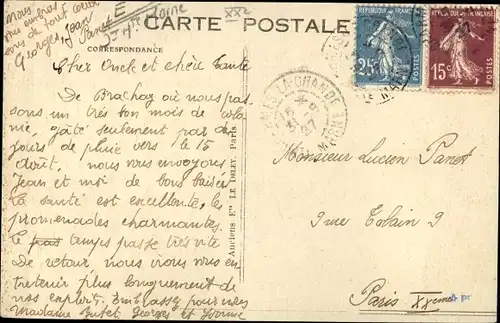 CARTE POSTALE
CORRESPONDANCE
Cher Oncle et chère Tante
De Brachay où nous pas-
sons un très bon mois de
gâté seulement par des
jours de pluie vers le 15
Août, nous vous envoyons
Jean et moi de bons baisers
La santé est excellente, les
promenades charmantes.
Le temps passe très vite
De retour nous irons vous en
tretenir plus longuement de
nos exploits. Embrassez pour nous
Madame Georges et Yvonne
Nous
vous embras
sons de tout coeur
Jean
Georges
Anciens Etts LE DELEY, Paris
RÉPUBLIQUE FRANÇAISE
25c
POSTES
15c
POSTES
Monsieur Lucien Panet
9 rue Tolain 9
Paris XXème